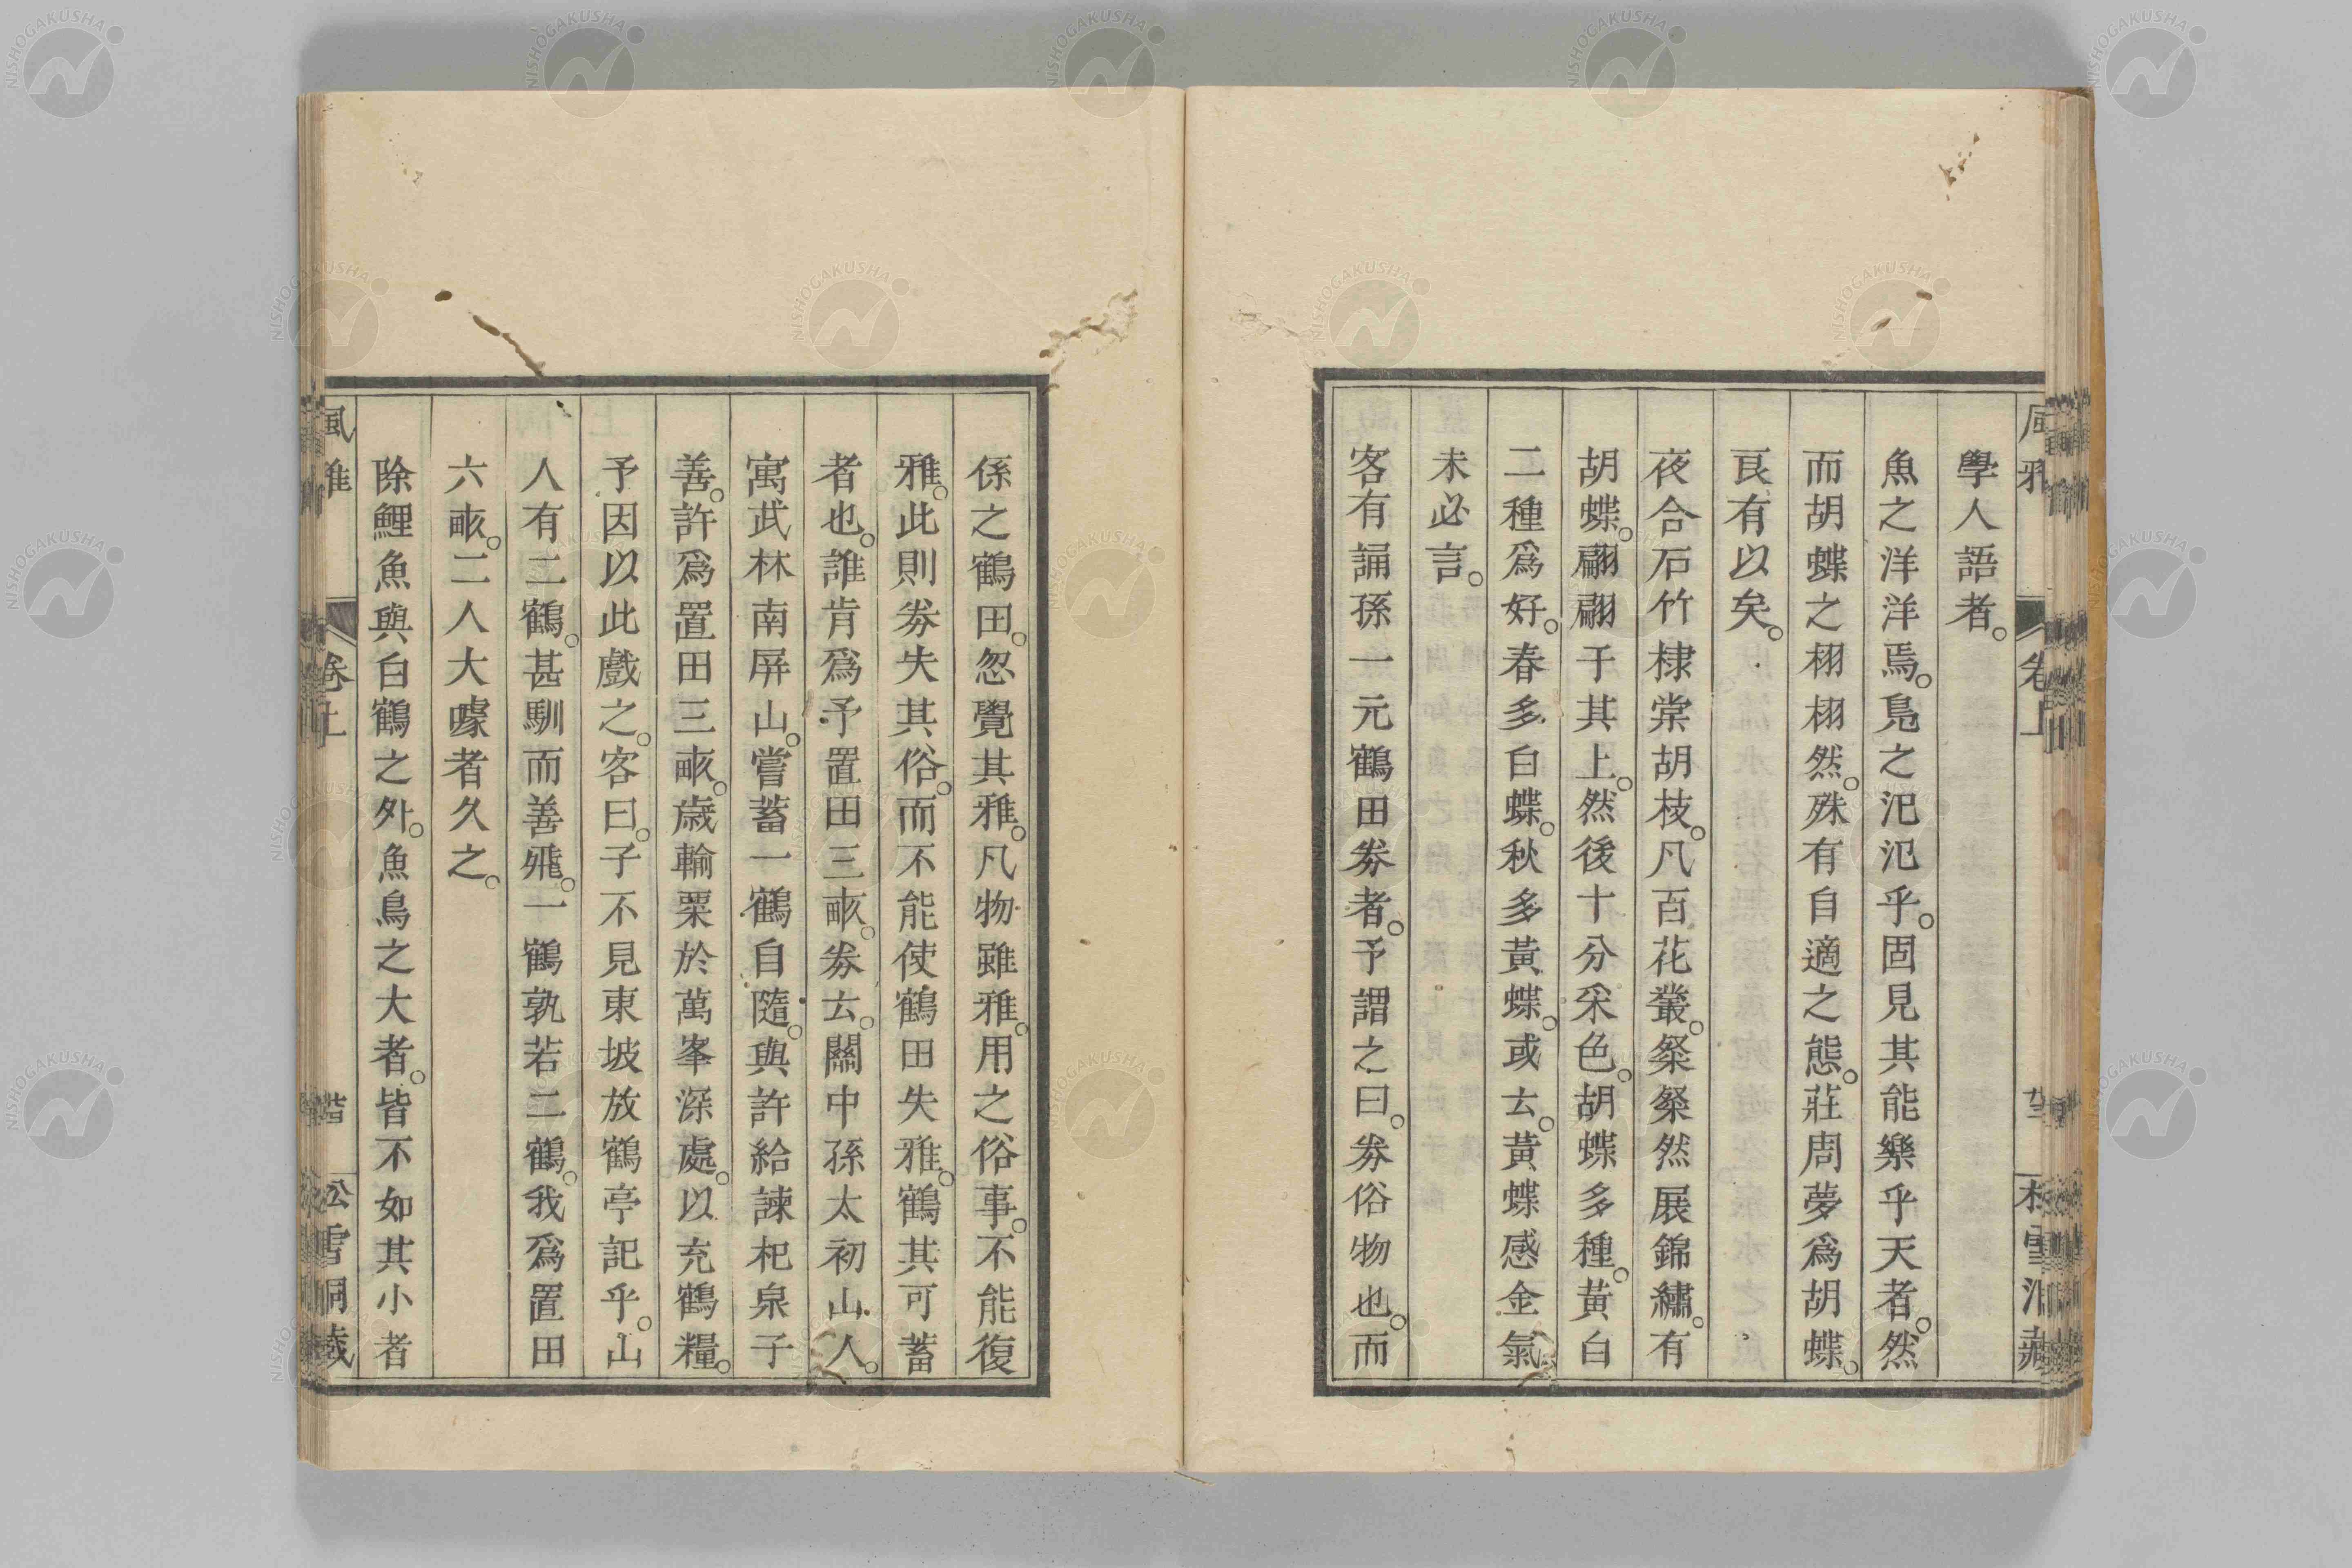 學人語者。
魚之洋洋焉。鳬之汜汜乎。固見其能樂乎天者。然
而胡蝶之栩栩然。殊有自適之態。莊周夢爲胡蝶。
良有以矣。
夜合石竹棣棠胡枝。凡百花叢。粲粲然展錦繡。有
胡蝶。翩翩于其上。然後十分采色。胡蝶多種。黃白
二種爲好。春多白蝶。秋多黃蝶。或云。黃蝶感金氣。
未必言。
客有誦孫一元鶴田劵者。予謂之曰。劵俗物也。而
係之鶴田。忽覺其雅。凡物雖雅。用之俗事。不能復
雅。此則劵失其俗。而不能使鶴田失雅。鶴其可蓄
者也。誰肯爲予置田三畝。劵云。關中孫太初山人。
寓武林南屛山。嘗蓄一鶴自隨。與許給諫杞泉子
善。許爲置田三畝。歲輸粟於萬峯深處。以充鶴糧。
予因以此戲之。客曰。子不見東坡放鶴亭記乎。山
人有二鶴。甚馴而善飛。一鶴孰若二鶴。我爲置田
六畝。二人大噱者久之。
除鯉魚與白鶴之外。魚鳥之大者。皆不如其小者
風雅
卷上
NISHOGAKUSHA